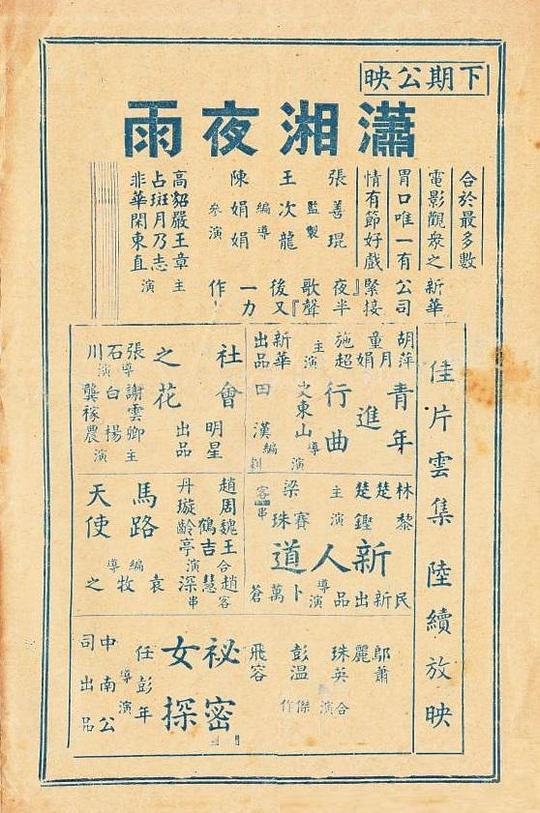 下期公映
瀟湘夜雨
合於最多數
電影觀衆之
胃口唯一有
情有節好戲
新華
公司
緊接
『夜半
歌聲』
後又
一力
作
張善琨
監製
王次龍
編導
陳娟娟
參演
高貂嚴王章
占斑月乃志
非華閑東直
主
演
佳片雲集 陸續放映
胡萍
童月娟
施超
主演
新華
出品
青年
進
行曲
史東山
導演
田漢
編劇
社會
之花
明星
出品
張石川
導演
謝雲卿
白楊
龔稼農
主演
林楚楚
黎鏗
主演
梁賽珠
客串
新人道
民新出品
卜萬蒼
導演
趙丹
周璇
魏鶴齡
王吉亭
合演
趙慧深
客串
馬路
天使
袁牧之
編導
鄔麗珠
蕭英
合演
彭飛
溫容
傑作
祕密
女探
任彭年
導演
中南公
司出品